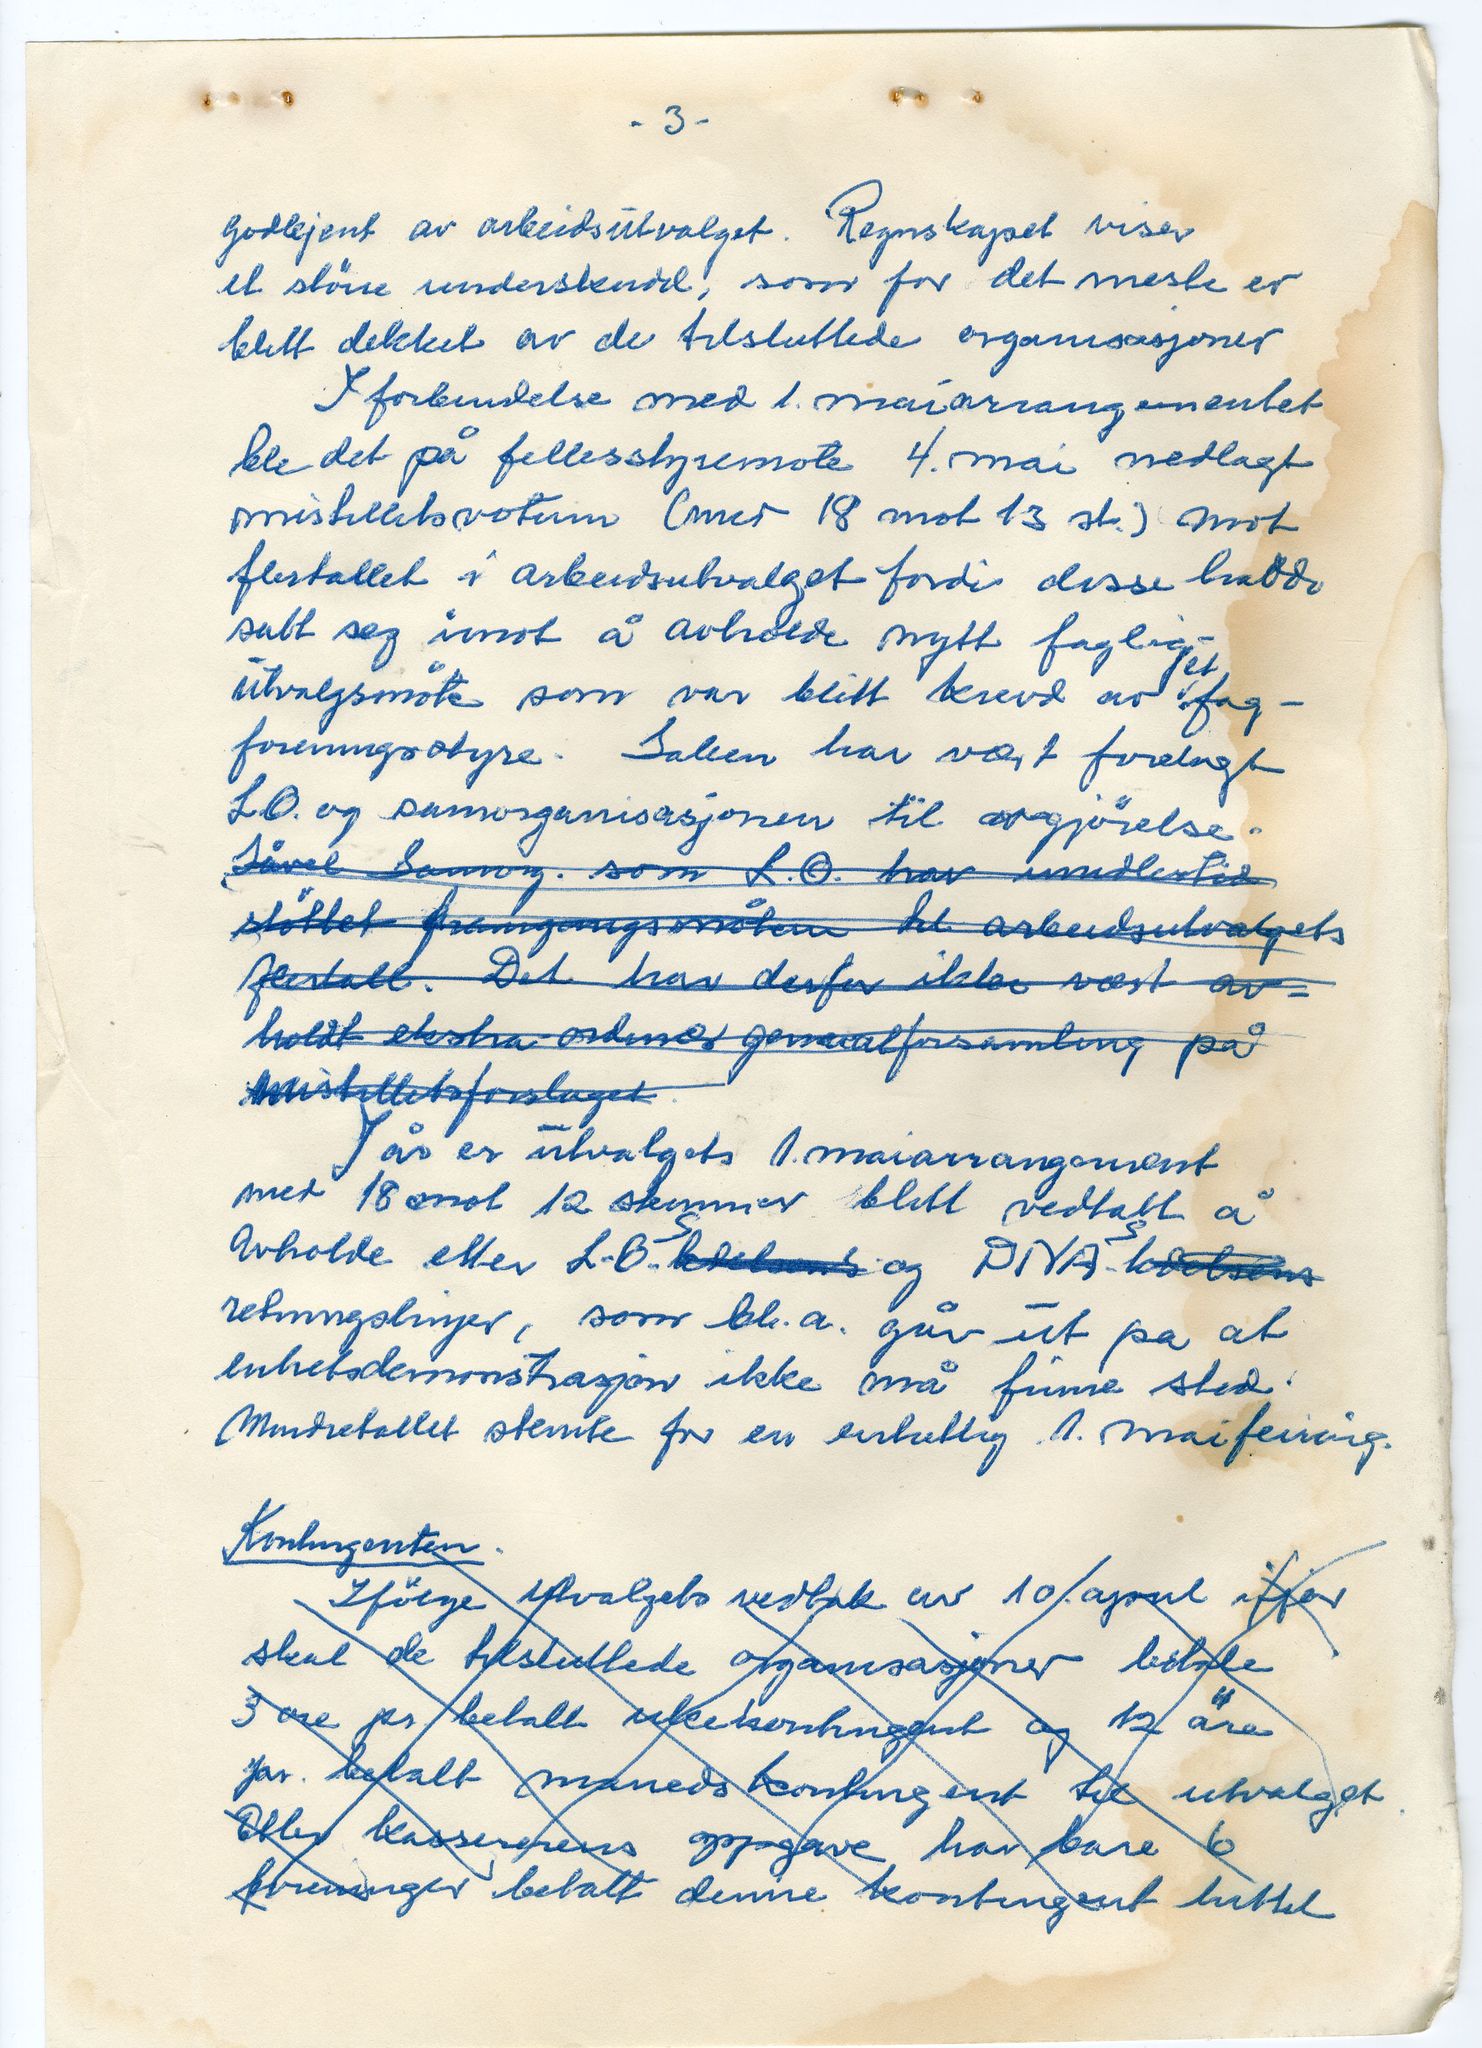 - 3 -
godkjent av arbeidsutvalget. Regnskapet viser
et större underskudd, som for det meste er
blitt dekket av de tilsluttede organisasjoner
I forbindelse med 1. maiarrangementet
ble det på fellesstyremøte 4. mai nedlagt
mistillitsvotum (med 18 mot 13 st.) mot
flertallet i arbeidsutvalget fordi disse hadde
satt seg imot å avholde nytt faglig-
utvalgsmöte som var blitt krevd av et fag-
foreningsstyre. Saken har vært forelagt
L.O. og samorganisasjonen til avgjörelse.
Såvel Samorg. som L.O. har imidlertid
støttet framgangsmåten til arbeidsutvalgets
flertall. Det har derfor ikke vært av-
holdt ekstra ordinær generalforsamling på
mistillitsforslaget.
I år er utvalgets 1. maiarrangement
med 18 mot 12 stemmer blitt vedtatt å
avholde etter L.O.s ledelsens og DNA s ledelsens
retningslinjer, som bl.a. går ut på at
enhetsdemonstrasjon ikke må finne sted.
Mindretallet stemte for en enhetlig 1. maifeiring.
Kontingenten.
Ifölge utvalgets vedtak av 10. april ifjor
skal de tilsluttede organisasjoner betale
3 øre pr betalt ukekontingent og 12 öre
pr. betalt månedskontingent til utvalget.
Etter kassererens oppgave har bare 6
foreninger betalt denne kontingent hittil